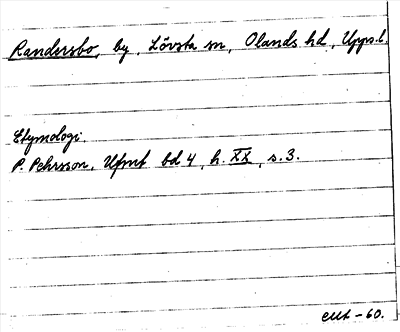 Randersbo, by, Lövsta sn, Olands hd, Upps.l.
Etymologi.
P. Pehrsson, Ufmt bd 4, h. XX, s. 3.
-60.